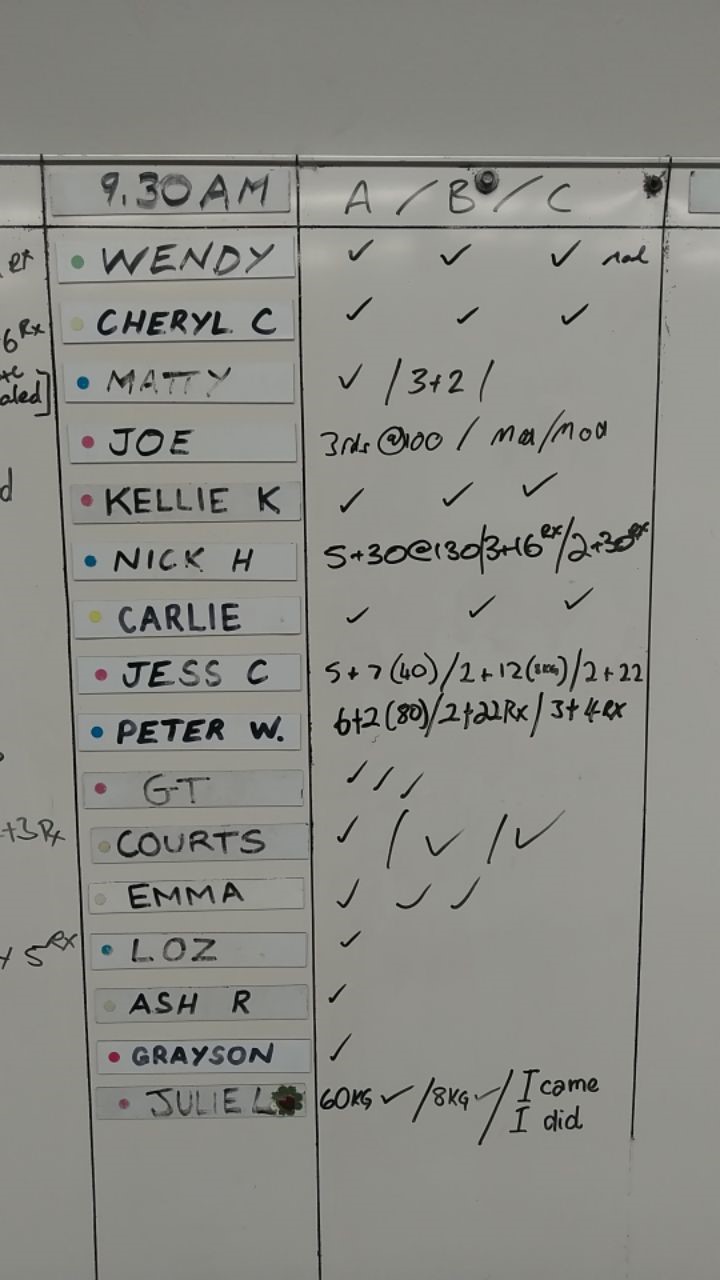 9.30AM A / B / C
WENDY ✓ ✓ ✓
CHERYL C ✓ ✓ ✓
MATTY ✓ / 3+2 /
JOE 3rds @100 / /mod
KELLIE K ✓ ✓ ✓
NICK H 5+30@130/3+16Rx/2+30Rx
CARLIE ✓ ✓ ✓
JESS C 5+7(40)/2+12(8KG)/2+22
PETER W. 6+2(80)/2+22Rx/3+4Rx
GT ✓ ✓ ✓
COURTS ✓ / ✓ / ✓
EMMA ✓ ✓ ✓
LOZ ✓
ASH R ✓
GRAYSON ✓
JULIE L 60KG ✓ / 8KG ✓ / I came
I did
6Rx
aled]
d
+3Rx
5Rx